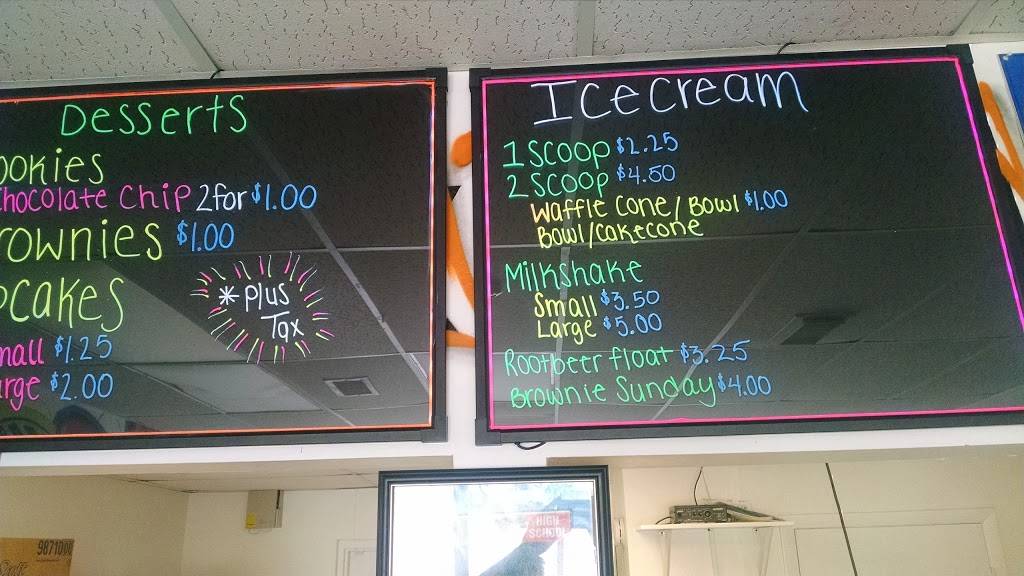 Desserts
ookies
hocolate Chip 2 for $1.00
rownies $1.00
pcakes
* plus
Tax
mall $1.25
arge $2.00
Icecream
1 Scoop $2.25
2 Scoop $4.50
Waffle Cone / Bowl $1.00
Bowl / cakecone
Milkshake
Small $3.50
Large $5.00
Rootbeer float $3.25
Brownie Sunday $4.00
HIGH
SCHOOL